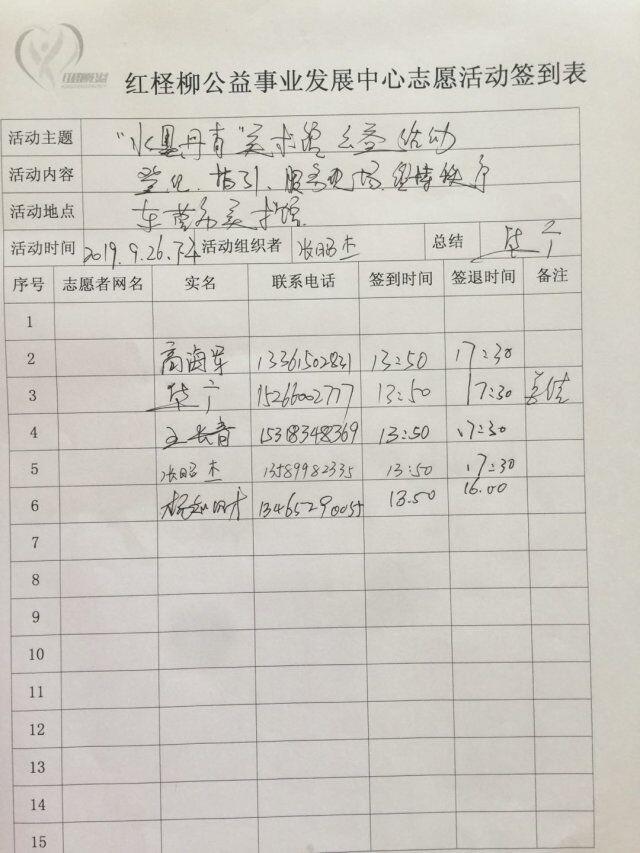 红柽柳公益事业发展中心志愿活动签到表
活动主题 "水墨丹青"美术馆公益活动
活动内容 登记、指引、服务现场、维持秩序
活动地点 东营市美术馆
活动时间 2019.9.26.下午 活动组织者 张昭杰 总结
序号 志愿者网名 实名 联系电话 签到时间 签退时间 备注
1
2 高海军 13361502831 13:50 17:30
3 15266002777 13:50 17:30 总结
4 王长青 15318348369 13:50 17:30
5 张昭杰 13589982335 13:50 17:30
6 13465290055 13.50 16.00
7
8
9
10
11
12
13
14
15